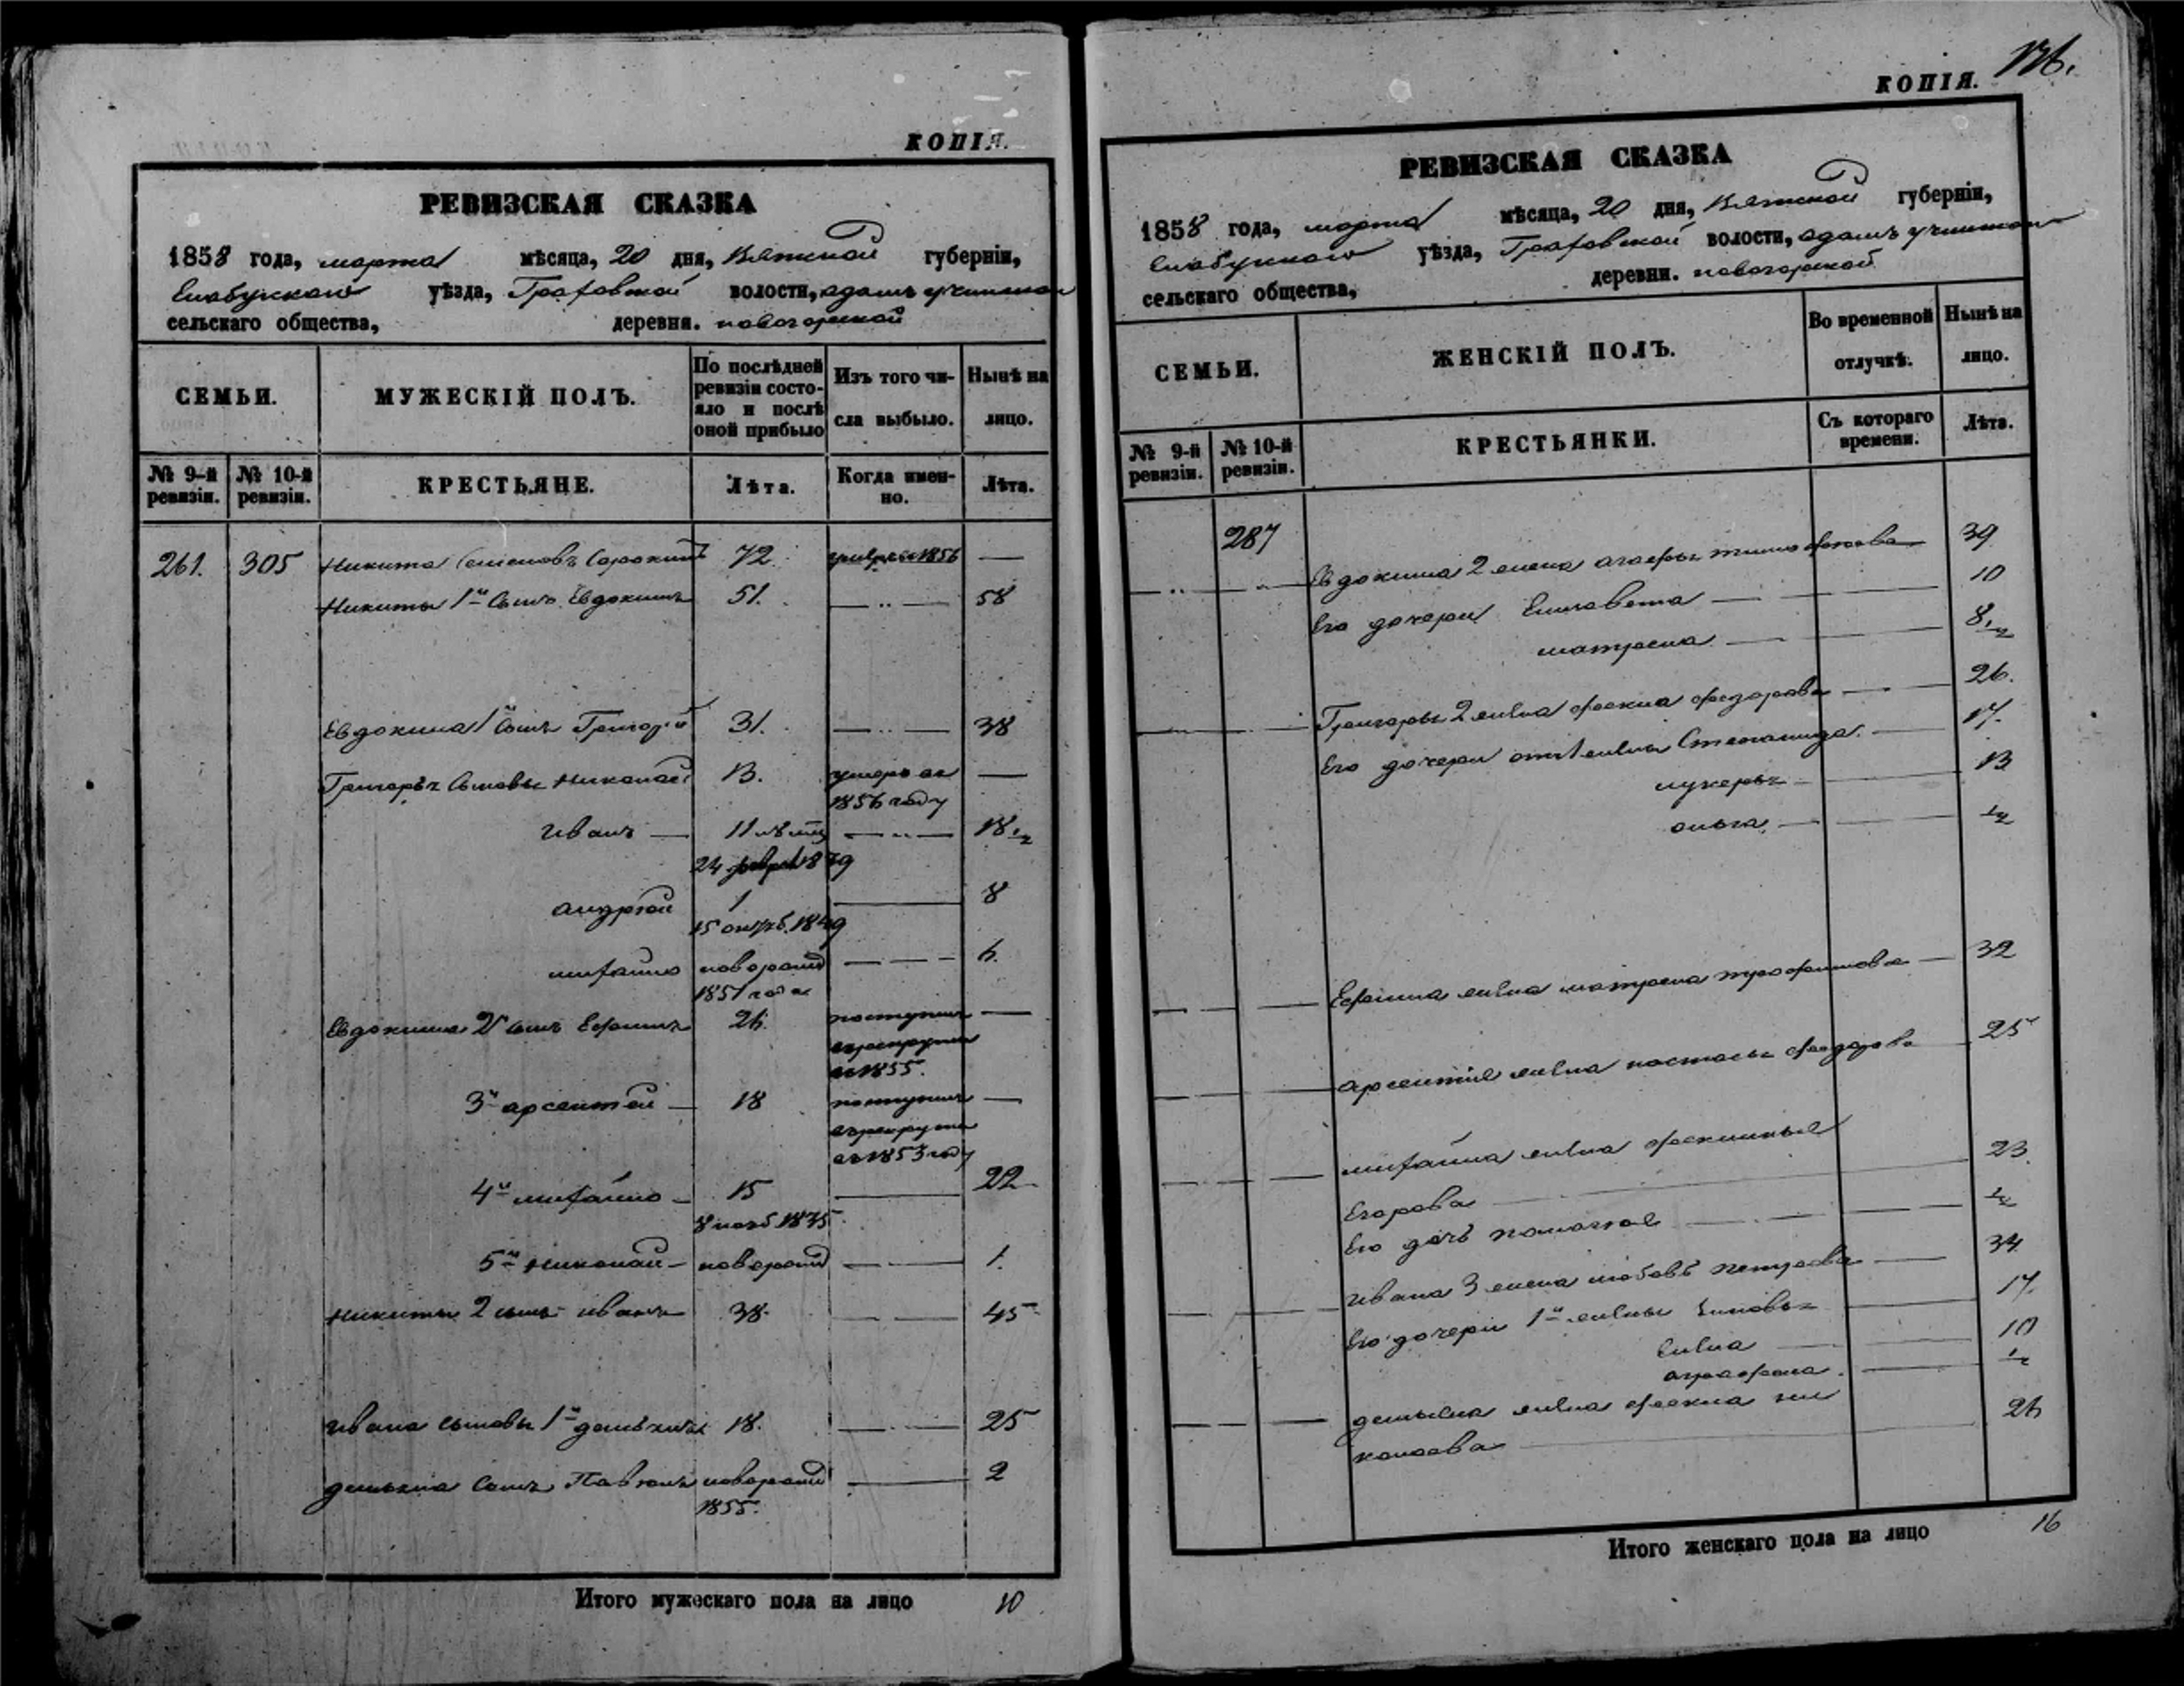 КОПІЯ.
РЕВИЗСКАЯ СКАЗКА
1858 года, марта мѣсяца, 20 дня, Вятской губерніи,
Елабужскаго уѣзда, Граховской волости,
сельскаго общества, деревни. новогорской
СЕМЬИ. МУЖЕСКІЙ ПОЛЪ. По послѣдней ревизіи состояло и послѣ оной прибыло Изъ того числа выбыло. Нынѣ на лицо.
№ 9-й ревизіи. № 10-й ревизіи. КРЕСТЬЯНЕ. Лѣта. Когда именно. Лѣта.
261. 305 Никита Семеновъ Сорокинъ 72. 1856 —
Никиты 1й сынъ Евдокимъ 51. — „ — 58
Евдокима 1й сынъ Григорій 31. — „ — 38
Григорья сыновья Николай 13. умеръ въ —
1856 году
Иванъ — 11 — „ — 18 1/2
24
андрей 1 — 8
15 октяб. 1849
михайло новорожд — — — 6.
1851 года
Евдокима 2й сынъ Ефимъ 26. поступилъ —
въ рекруты
въ 1855.
3й арсентей — 18 поступилъ —
въ рекруты
въ 1853 году
4й михайло — 15 — 22
8 нояб 1835
5й николай — новорожд — — 1.
Никиты 2 сынъ иванъ 38. — — 45
Ивана сыновья 1й 18. — . — 25
сынъ Павелъ новорожд — 2
1855.
Итого мужескаго пола на лицо 10
КОПІЯ. 176.
РЕВИЗСКАЯ СКАЗКА
1858 года, марта мѣсяца, 20 дня, Вятской губерніи,
Елабужскаго уѣзда, Граховской волости,
сельскаго общества, деревни. новогорской
СЕМЬИ. ЖЕНСКІЙ ПОЛЪ. Во временной отлучкѣ. Нынѣ на лицо.
№ 9-й ревизіи. № 10-й ревизіи. КРЕСТЬЯНКИ. Съ котораго времени. Лѣта.
287
— „ — Евдокима 2 жена агафья тимофеева — 39
Его дочери Елисавета — — 10
матрена — — 8 1/2
Григорья 2 жена фекла федорова — 26.
Его дочери отъ 1 жены Степанида. — 17.
лукерья — 13
ольга. — 1/2
— — Ефима жена матрена трофимова — 32
— — арсентія жена настасья федорова 25
— — михайла жена
Егорова — 23.
Его дочь — 1/2
— — Ивана 3 жена любовь петрова — 34
Его дочери 1й жены зиновья — 17.
— 10
аграфена. — 1/2
— — жена фекла ни
колаева — 26
Итого женскаго пола на лицо 16